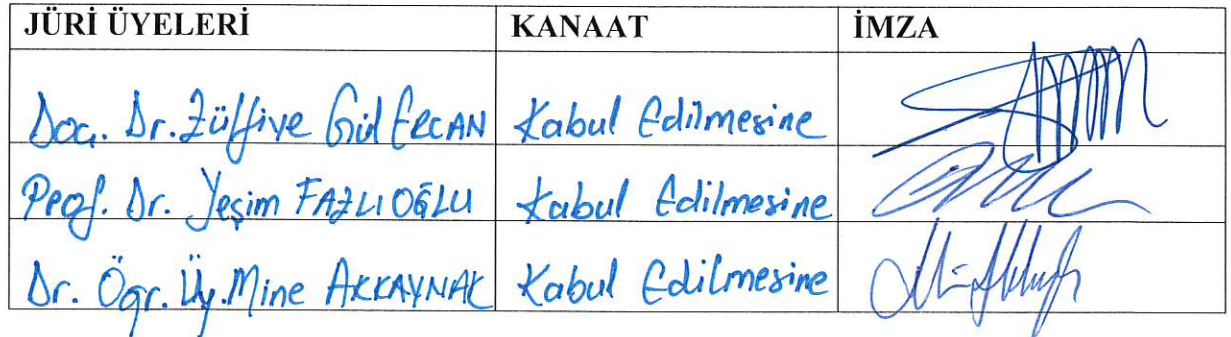 JÜRİ ÜYELERİ KANAAT İMZA
Doç. Dr. Zülfiye Gül ERCAN Kabul Edilmesine
Prof. Dr. Yeşim FAZLIOĞLU Kabul Edilmesine
Dr. Öğr. Üy. Mine AKKAYNAK Kabul Edilmesine